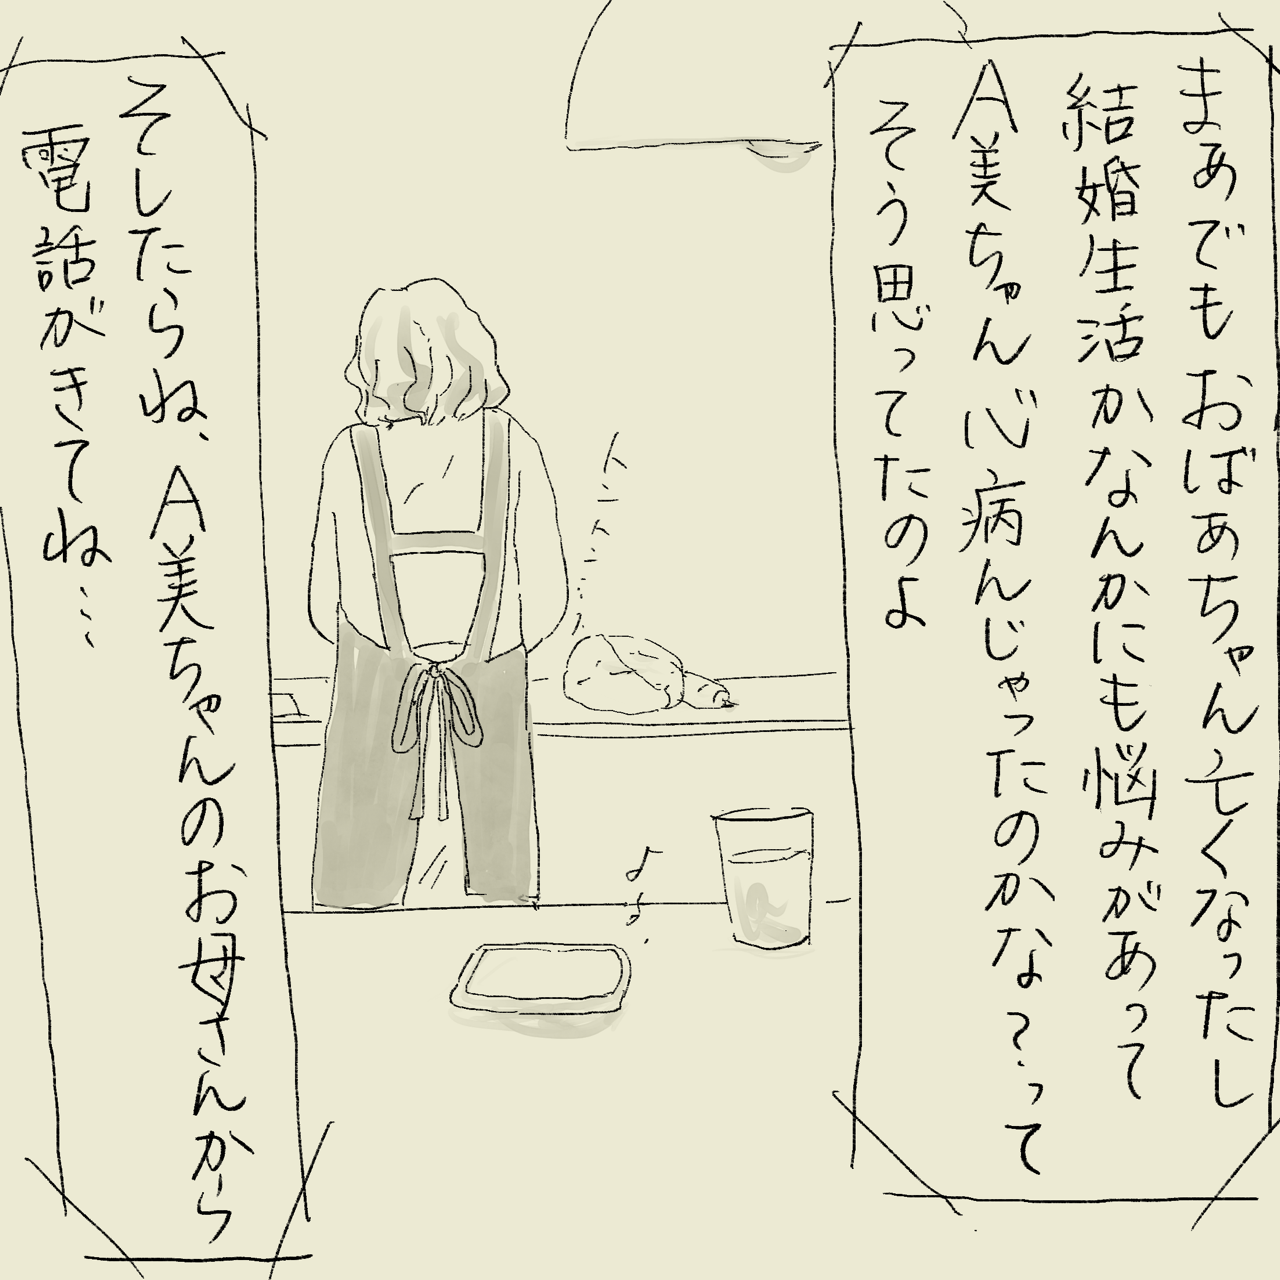 まぁでもおばあちゃん亡くなったし
結婚生活かなんかにも悩みがあって
A美ちゃん心病んじゃったのかな?って
そう思ってたのよ
トントン…
そしたらね、A美ちゃんのお母さんから
電話がきてね…